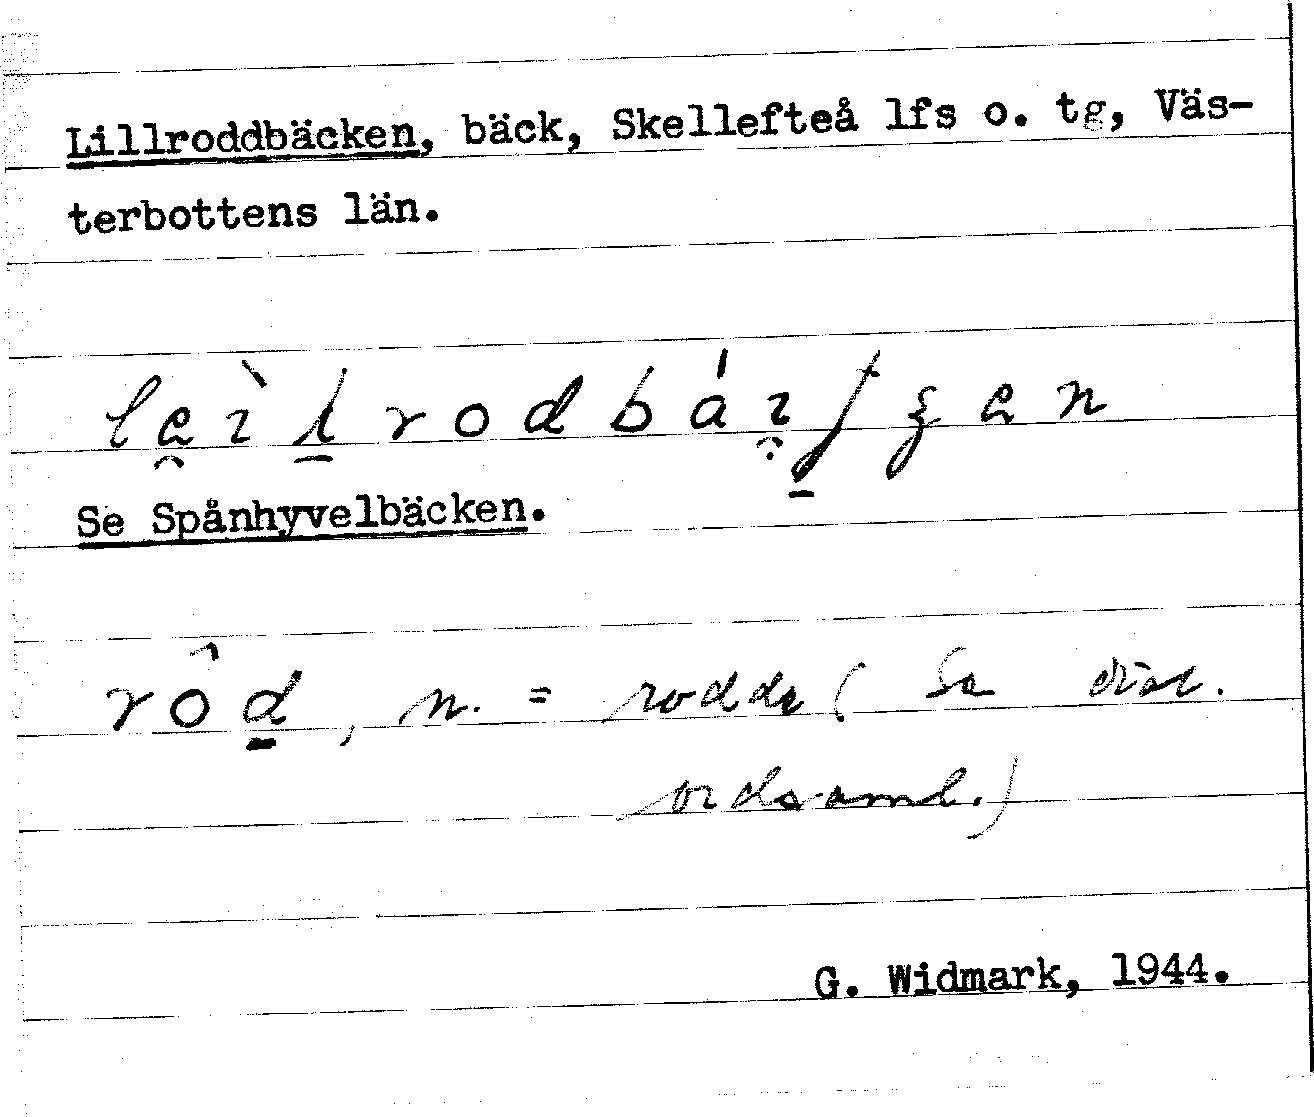 Lillroddbäcken, bäck, Skellefteå lfs o. tg, Väs-
terbottens län.
Se Spånhyvelbäcken.
rôd, n. = rodde (Se dial.
ordsaml.)
G. Widmark, 1944.